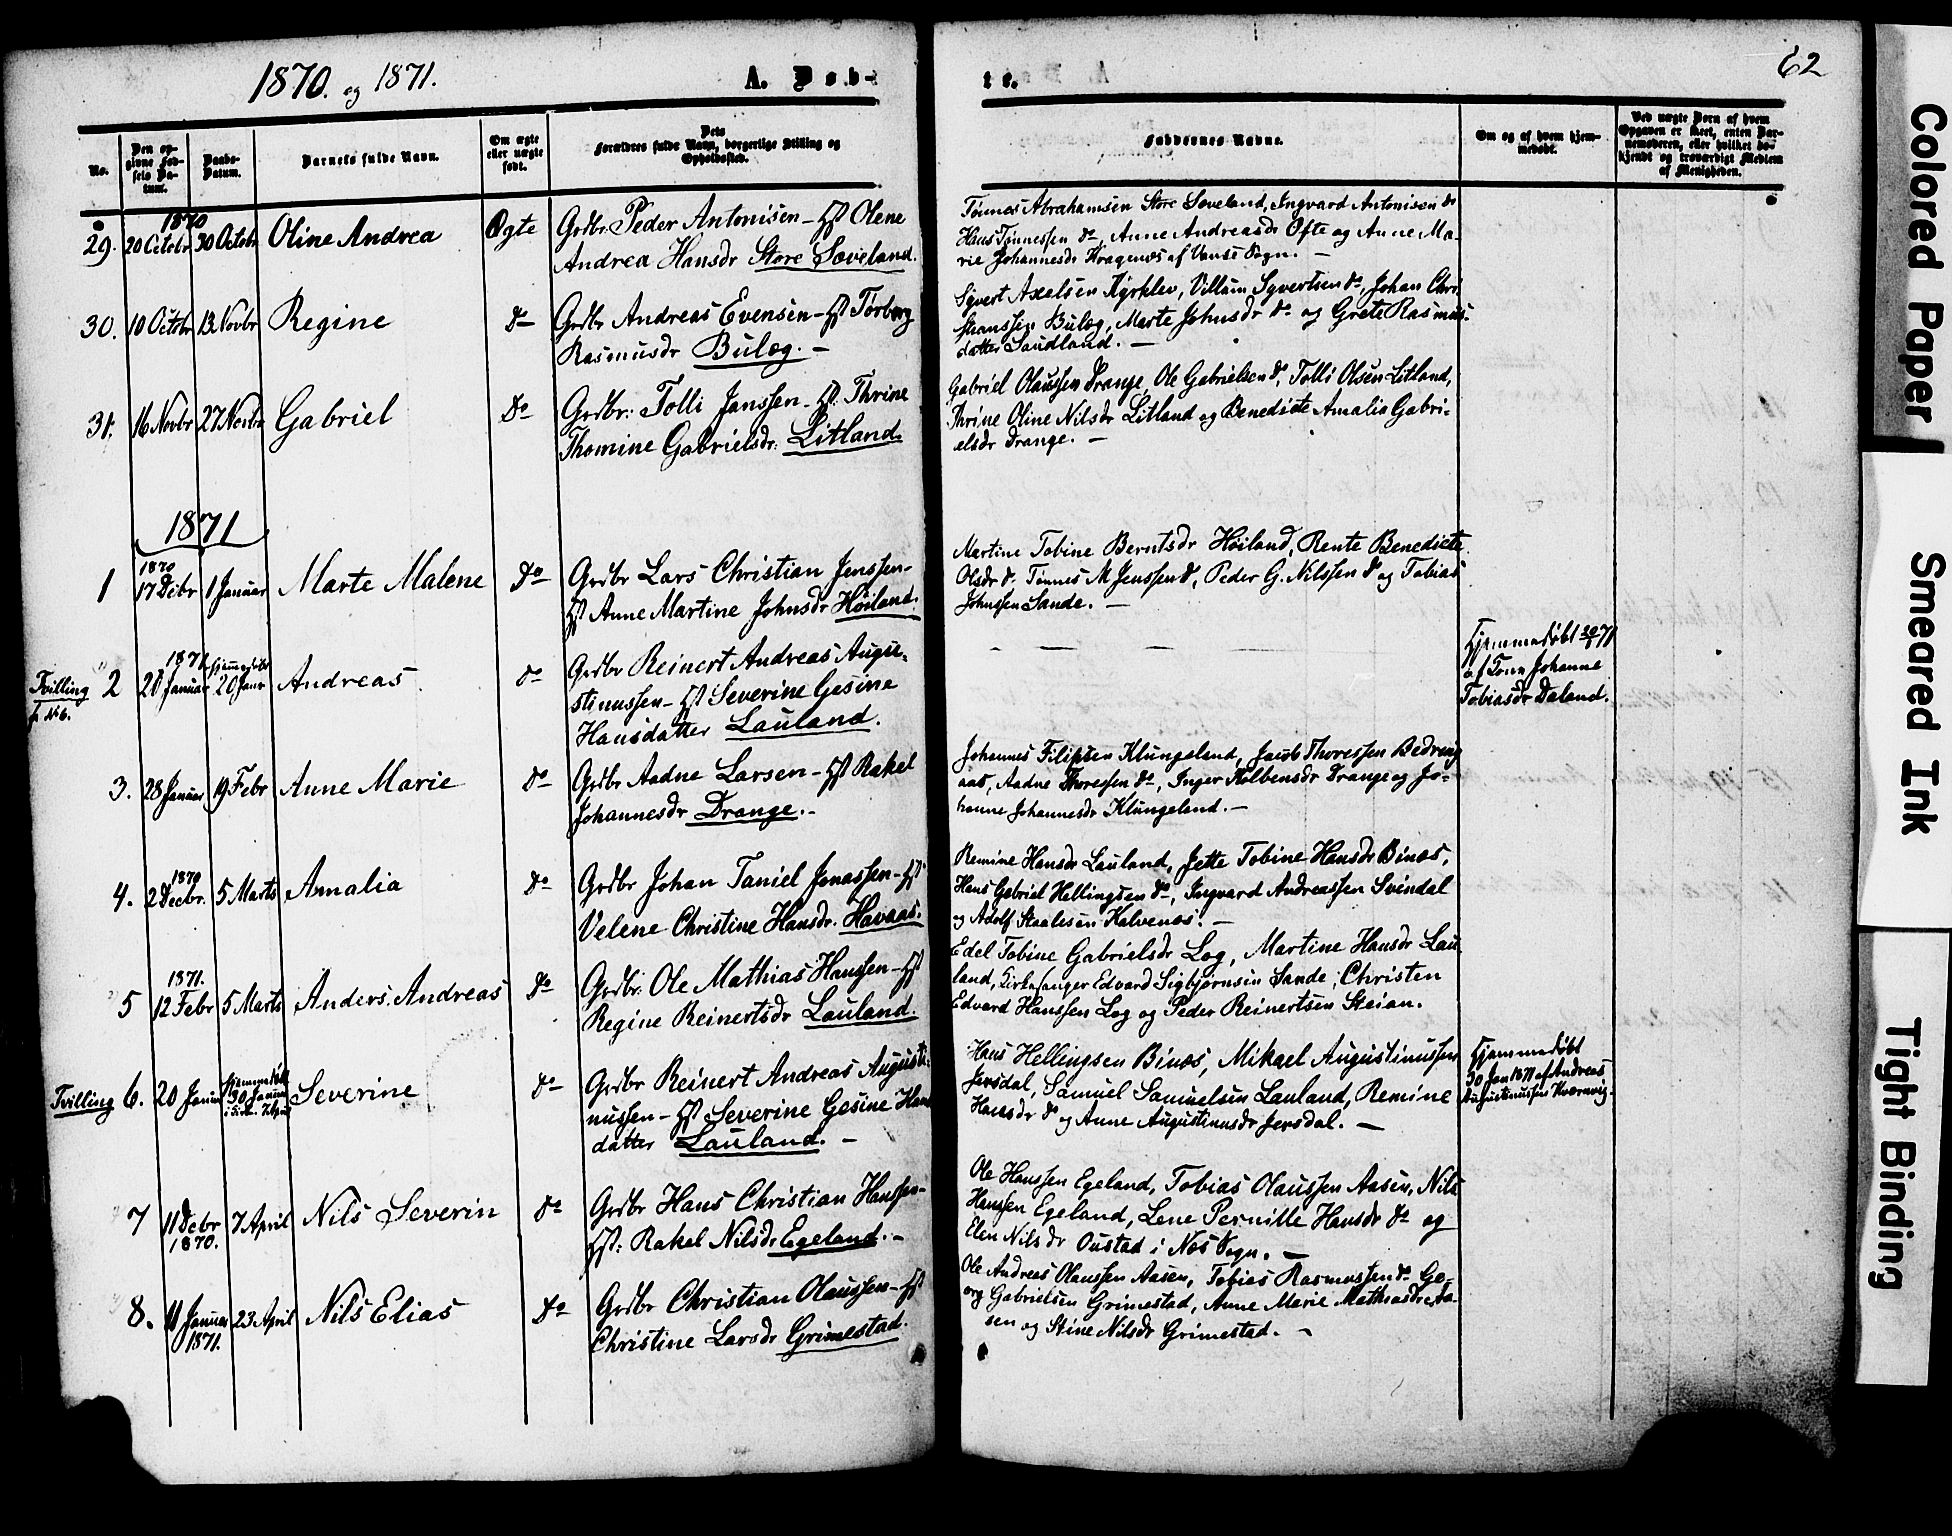 1870. og 1871.
A. Døb-
te.
62
No.
Den opgivne Fødsels Datum.
Daabs-Datum.
Barnets fulde Navn.
Om ægte eller uægte født.
Dets Forældres fulde Navn, borgerlige Stilling og Opholdssted.
Faddernes Navne.
Om og af hvem hjemmedøbt.
Ved uægte Børn af hvem Opgaven er skeet, enten Barnemoderen, eller hvilket bekjendt og troværdigt Medlem af Menigheden.
1870
29. 20 Octobr 30 Octobr Oline Andrea Ægte Grdbr. Peder Antonisen - Hst Olene
Andrea Hansdr Store Sæveland.
Tønnes Abrahamsen Store Sæveland, Ingvard Antonisen do
Hans Tønnessen do, Anne Andreasdr Ofte og Anne Ma-
rie Johannesdr Kragenæs af Vanse Sogn. -
30. 10 Octobr 13 Novbr Regine do Grdbr Andreas Evensen - Hst Torborg
Rasmusdr Bulæg. -
Syvert Axelsen Kyrklev, Villum Syvertsen do, Johan Chri-
stianssen Bulæg, Marte Johnsdr do og Grete Rasmus-
datter Saudland. -
31. 16 Novbr 27 Novbr Gabriel Do Grdbr: Tolli Janssen - Hst. Thrine
Thomine Gabrielsdr. Litland.
Gabriel Olaussen Drange, Ole Gabrielsen do, Tolli Olsen Litland,
Thrine Oline Nilsdr Litland og Benedicte Amalia Gabri-
elsdr Drange. -
1871
1870
1 17 Dcbr 1 Januar Marte Malene Do Grdbr Lars Christian Jenssen-
Hst Anne Martine Johnsdr Høiland.
Martine Tobine Berntsdr Høiland, Rente Benedicte
Olsdr do. Tønnes M Jenssen do, Peder G. Nilssen do og Tobias
Johnssen Sande. -
1871 hjemmedøbt
Tvilling 2 20 Januar 20 Janr Andreas do Grdbr Reinert Andreas Augu-
fr No 6.
stinussen - Hst Severine Gesine
Hansdatter Lauland.
Hjemmedøbt 20/1 71
af Johanne
Tobiasdr Daland.
3. 28 Januar 19 Febr Anne Marie do Grdbr Aadne Larsen - Hst Rakel
Johannesdr Drange. -
Johannes Filipsen Klungeland, Jacob Thoressen Bedrang
aas, Aadne Thoressen do, Inger Aalbensdr Drange og Jo-
hanne Johannesdr Klungeland. -
1870
4. 2 Decbr. 5 Marts Amalia Do Grdbr Johan Daniel Jonassen - Hst
Velene Christine Hansdr. Havaas.
Remine Hansdr Lauland, Jette Tobine Hansdr Binæs,
Hans Gabriel Hellingsen do, Ingvard Andreassen Svindal
og Adolf Staalesen Kalvenæs. -
1871.
5 12 Febr 5 Marts Anders. Andreas Do Grdbr: Ole Mathias Hanssen - Hst
Regine Reinertsdr Lauland.
Edel Tobine Gabrielsdr Log, Martine Hansdr Lau-
land, Kirkesanger Edvard Sigbjørnsen Sande, Christen
Edvard Hanssen Log og Peder Reinertsen Steian.
Tvilling 6. 20 Januar hjemmedøbt 30 Januar Severine do Grdbr Reinert Andreas Augusti-
nussen - Hst Severine Gesine Hans
datter Lauland. -
Hans Hellingsen Binæs, Mikael Augustinussen
Jersdal, Samuel Samuelsen Lauland, Remine
Hansdr do og Anne Augustinusdr Jersdal. -
Hjemmedøbt
30 Jan 1871 af Andreas
Augustinussen Kværnvig.
7 11 Debr 7 April Nils Severin do Grdbr Hans Christian Hanssen-
1870.
Hst: Rakel Nilsdr Egeland. -
Ole Hanssen Egeland, Tobias Olaussen Aasen, Nils
Hanssen Egeland, Lene Pernille Hansdr do og
Elen Nilsdr Oustad i Næs Sogn. -
8. 11 Januar 23 April Nils Elias Do Grdbr Christian Olaussen - Hst
1871.
Christine Larsdr Grimestad.
Ole Andreas Olaussen Aasen, Tobias Rasmussen do Ge-
org Gabrielsen Grimestad, Anne Marie Mathiasdr Aa-
sen og Stine Nilsdr Grimestad. -
Colored Paper
Smeared Ink
Tight Binding